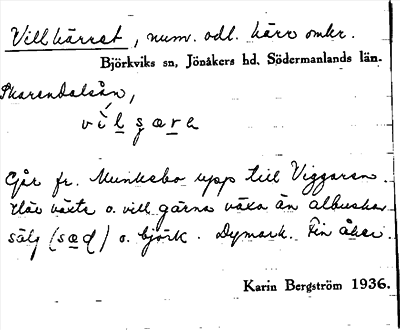 Villkärret, num. odl. kärr omkr.
Björkviks sn, Jönåkers hd. Södermanlands län.
Skarendalsån,
Går fr. Munkebo upp till Viggaren.
Här växte o. vill gärna växa än albuskar
sälg (sæḷ) o. björk. Dymark. Fin åker.
Karin Bergström 1936.